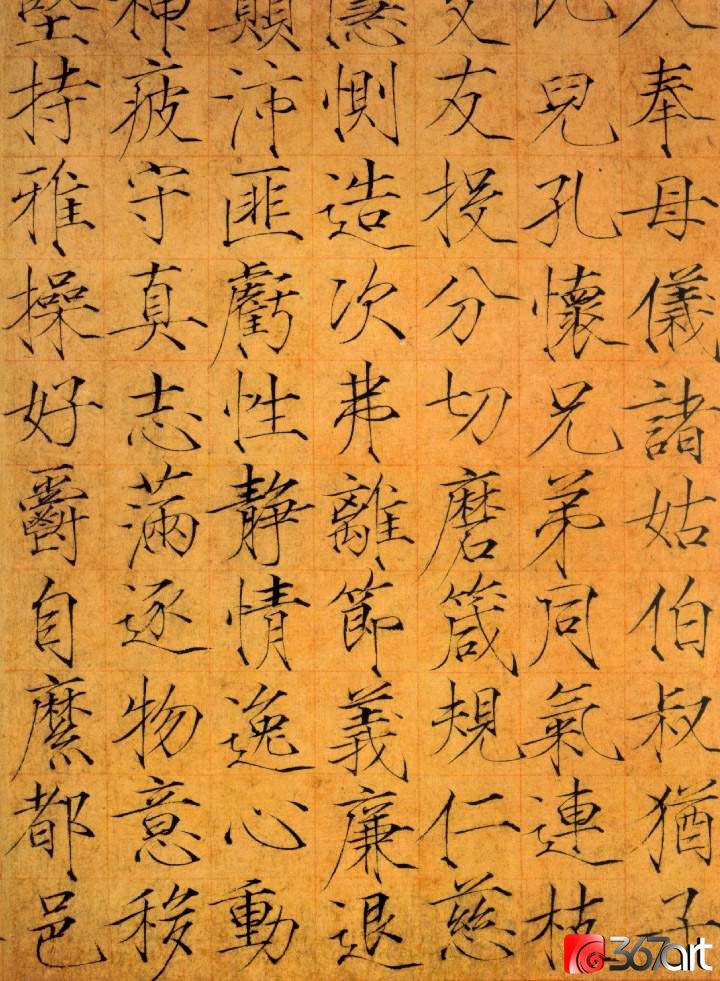 入奉母儀諸姑伯叔猶子
比兒孔懷兄弟同氣連枝
交友投分切磨箴規仁慈
隱惻造次弗離節義廉退
顛沛匪虧性靜情逸心動
神疲守真志滿逐物意移
堅持雅操好爵自縻都邑
367art